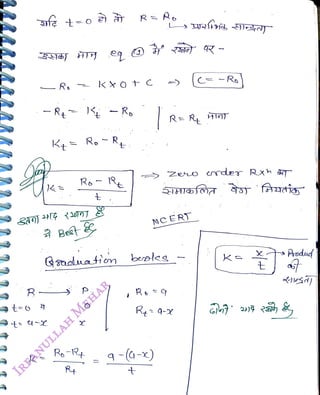 यदि t=0 हो तो R = R₀
→ प्रारम्भिक सान्द्रता
इसका मान eq ① में रखने पर -
- R₀ = K×0 + C ⇒ C = -R₀
- Rₜ = Kₜ - R₀ | R = Rₜ माना
Kₜ = R₀ - Rₜ
K = (R₀ - Rₜ)/t ⇒ Zero order Rxⁿ का
समाकलित वेग नियतांक
इतना याद रखना है
ये Best है
NCERT
Graduation books -
K = x/t → Product की सान्द्रता
R → P , R₀ = a
t=0 a 0 Rₜ = a-x
t=t a-x x
दोनों याद रखने हैं
K = (R₀-Rₜ)/Rₜ = (a-(a-x))/t
IRFANULLAH MEHAR